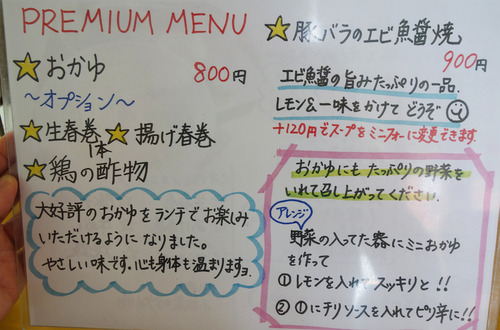 PREMIUM MENU
☆おかゆ 800円
～オプション～
☆生春巻1本☆揚げ春巻
☆鶏の酢物
大好評のおかゆをランチでお楽しみ
いただけるようになりました。
やさしい味です。心も身体も温まりますョ
☆豚バラのエビ魚醤焼
900円
エビ魚醤の旨みたっぷりの一品。
レモン&一味をかけてどうぞ
+120円でスープをミニフォーに変更できます。
おかゆにもたっぷりの野菜を
いれて召し上がってください。
アレンジ
野菜の入ってた器にミニおかゆ
を作って
①レモンを入れてスッキリと!!
②①にチリソースを入れてピリ辛に!!